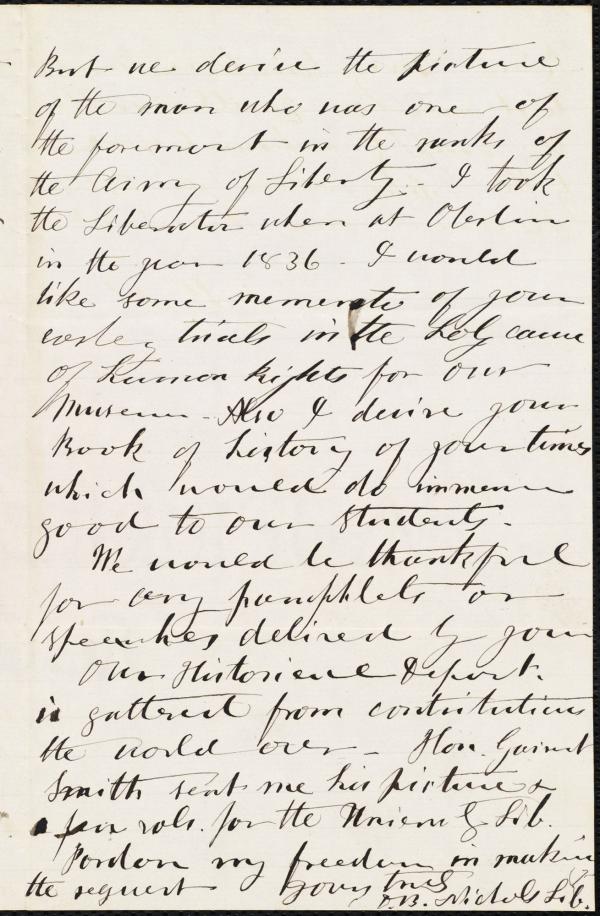 But we desire the picture
of the man who was one of
the foremost in the ranks of
the Army of Liberty. - I took
the Liberator when at Oberlin
in the year 1836 - I would
like some memento of your
early trials in the Holy cause
of Human Rights for our
Museum - Also I desire your
Book of history of your times
which would do immense
good to our students.
We would be thankful
for any pamphlets or
speeches delired by your
Our Historical Depart.
is gattered from contributions
the world over - Hon. Gerrit
Smith sent me his picture &
vols. for the University Lib.
Pardon my freedom in making
the request Yours truly
D.B. Nichols Lib.